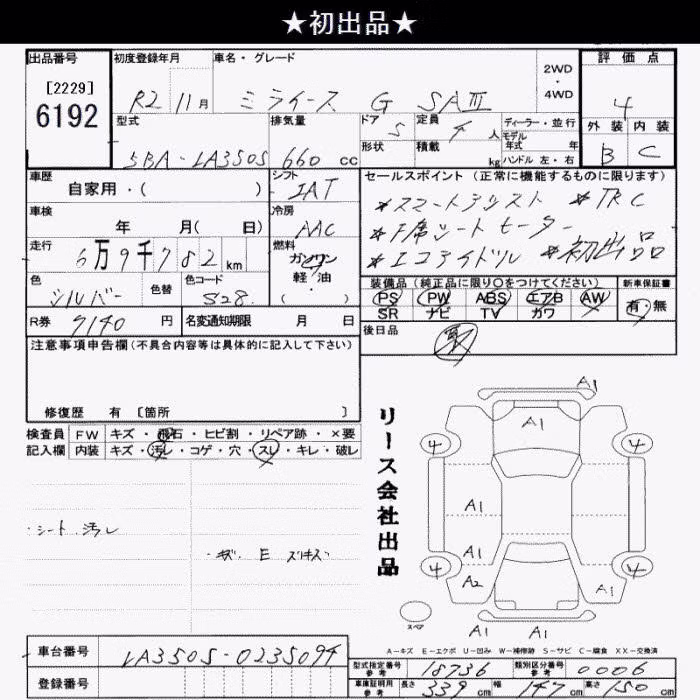 ★初出品★
出品番号
[2229]
6192
初度登録年月
R2 11月
車名・グレード
ミライース G SAⅢ
2WD
・
4WD
評価点
4
外装 内装
B C
型式
5BA-LA350S
排気量
660 cc
ドア
5
定員
4 人
ディーラー・並行
モデル
年式 年
形状
積載
kg
ハンドル 左・右
車歴
自家用・( )
シフト
IAT
セールスポイント (正常に機能するものに限ります)
*スマートアシスト *TRC
*F席シートヒーター
*エコアイドル *初出品
車検
年 月( 日)
冷房
AAC
走行
6万9千782 km
燃料
ガソリン
軽・油
( )
色
シルバー
色替
色コード
S28
装備品 (純正品に限り○をつけてください)
PS PW ABS エアB AW
SR ナビ TV カワ
新車保証書
有・無
R券 7140 円
名変通知期限 月 日
後日品
注意事項申告欄(不具合内容等は具体的に記入して下さい)
修復歴 有 [箇所 ]
検査員 FW キズ・飛石・ヒビ割・リペア跡・×要
記入欄 内装 キズ・汚レ・コゲ・穴・スレ・キレ・破レ
・シート 汚レ
リース会社出品
A1
A1
4 4
A1
A1
A2 A1
4 4
スペア
A1
A-キズ E-エクボ U-凹み W-補修跡 S-サビ C-腐食 XX-交換済
車台番号 LA350S-0235094
登録番号
型式指定番号 参考 18736
類別区分番号 参考 0006
車庫証明用 参考 長さ 339 cm 幅 147 cm 高さ 150 cm